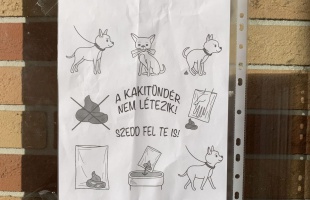 A KAKITÜNDÉR
NEM LÉTEZIK!
SZEDD FEL TE IS!